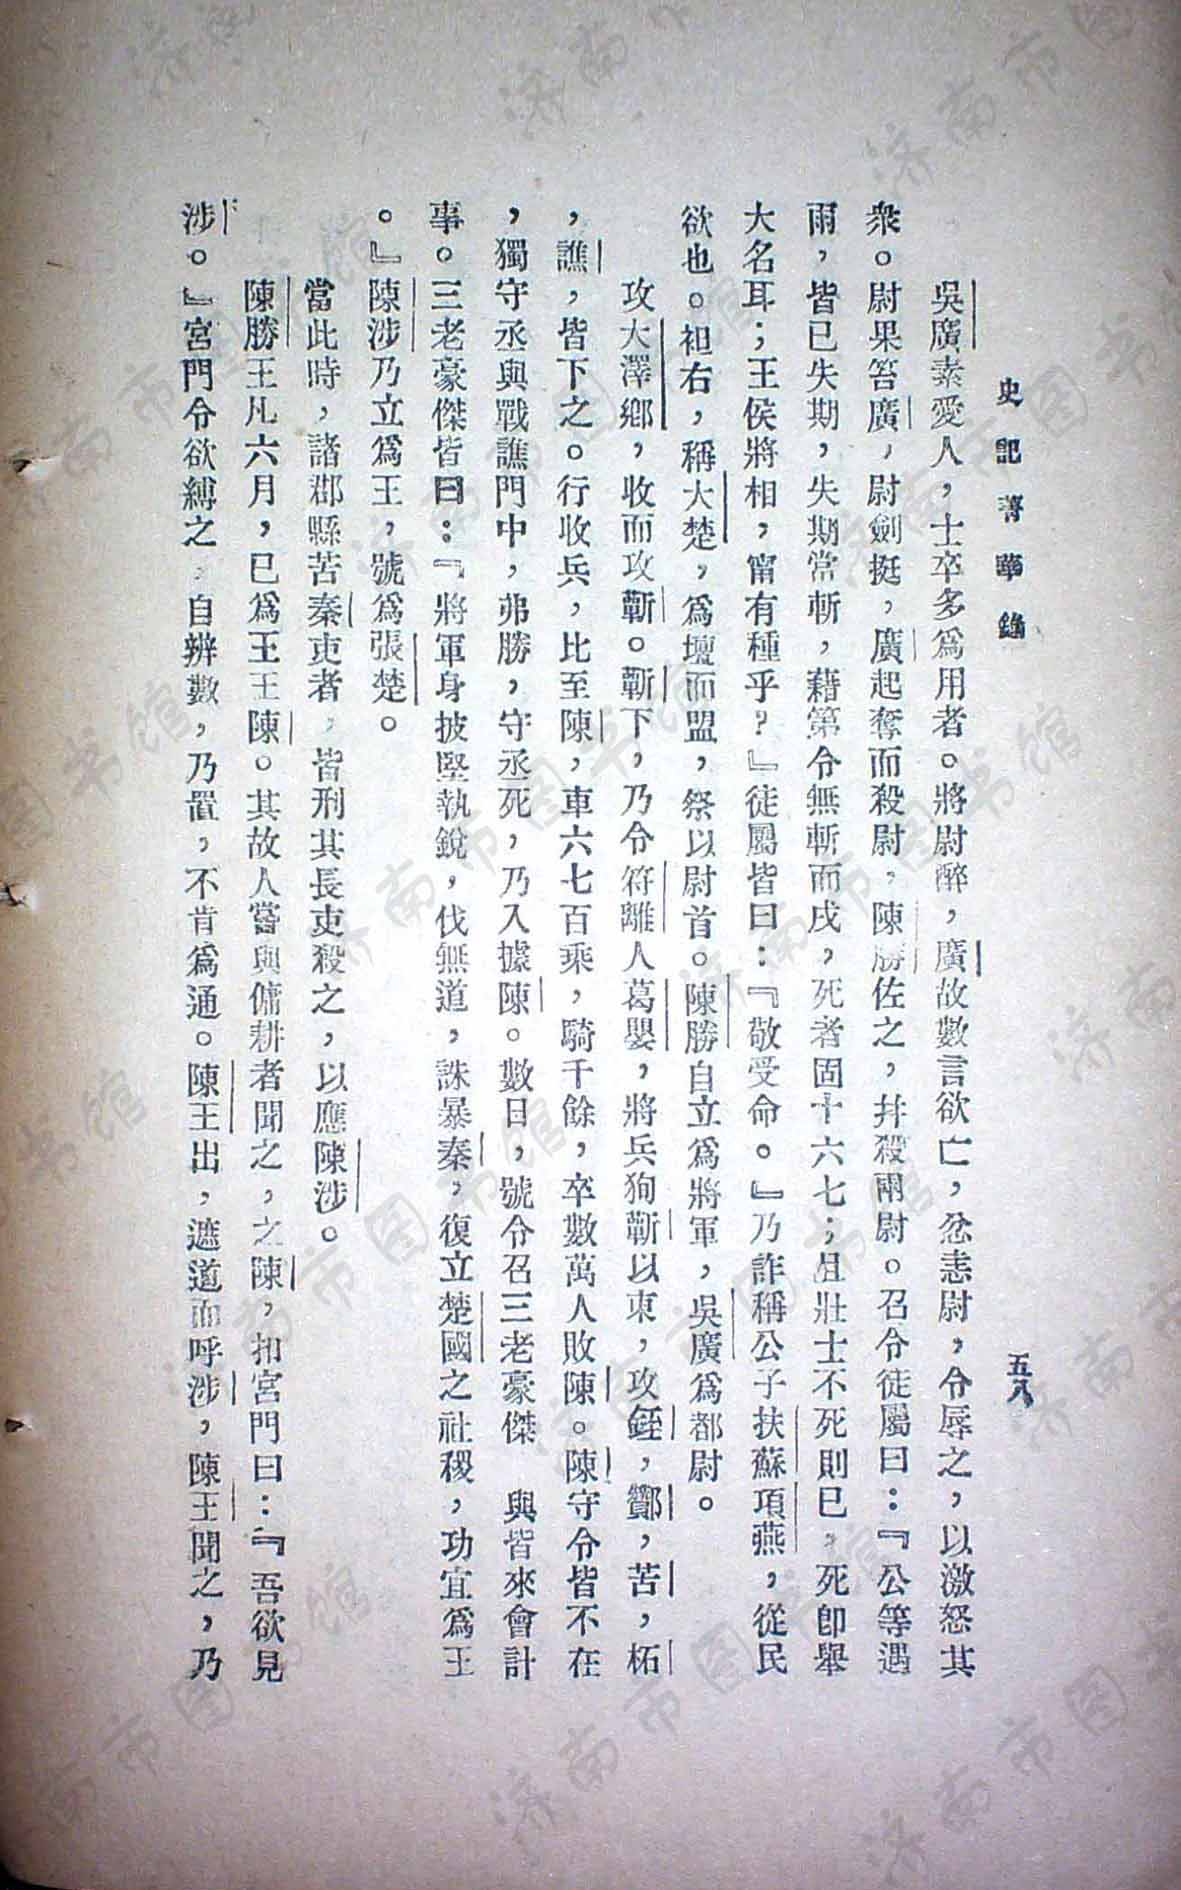 史記菁華錄
五八
吳廣素愛人，士卒多爲用者。將尉醉，廣故數言欲亡，忿恚尉，令辱之，以激怒其
衆。尉果笞廣，尉劍挺，廣起奪而殺尉，陳勝佐之，幷殺兩尉。召令徒屬曰：『公等遇
雨，皆已失期，失期當斬，藉第令無斬而戍，死者固十六七；且壯士不死則已，死卽舉
大名耳；王侯將相，甯有種乎？』徒屬皆曰：『敬受命。』乃詐稱公子扶蘇項燕，從民
欲也。袒右，稱大楚，爲壇而盟，祭以尉首。陳勝自立爲將軍，吳廣爲都尉。
攻大澤鄉，收而攻蘄。蘄下，乃令符離人葛嬰，將兵狥蘄以東，攻銍，酇，苦，柘
，譙，皆下之。行收兵，比至陳，車六七百乘，騎千餘，卒數萬人敗陳。陳守令皆不在
，獨守丞與戰譙門中，弗勝，守丞死，乃入據陳。數日，號令召三老豪傑 與皆來會計
事。三老豪傑皆曰：『將軍身披堅執銳，伐無道，誅暴秦，復立楚國之社稷，功宜爲王
。』陳涉乃立爲王，號爲張楚。
當此時，諸郡縣苦秦吏者，皆刑其長吏殺之，以應陳涉。
陳勝王凡六月，已爲王王陳。其故人嘗與傭耕者聞之，之陳，扣宮門曰：『吾欲見
涉。』宮門令欲縛之，自辨數，乃置，不肯爲通。陳王出，遮道而呼涉，陳王聞之，乃
济南市图书馆